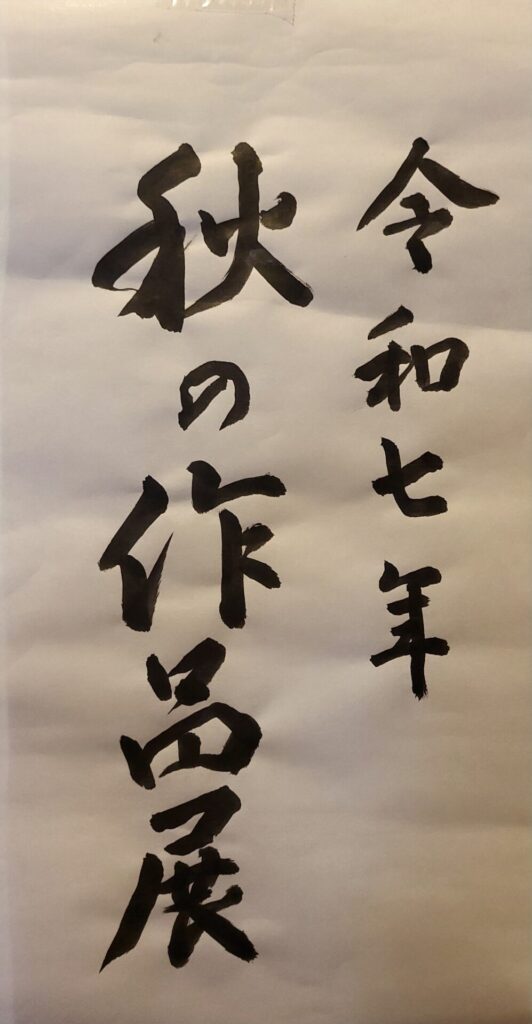 令和七年
秋の作品展